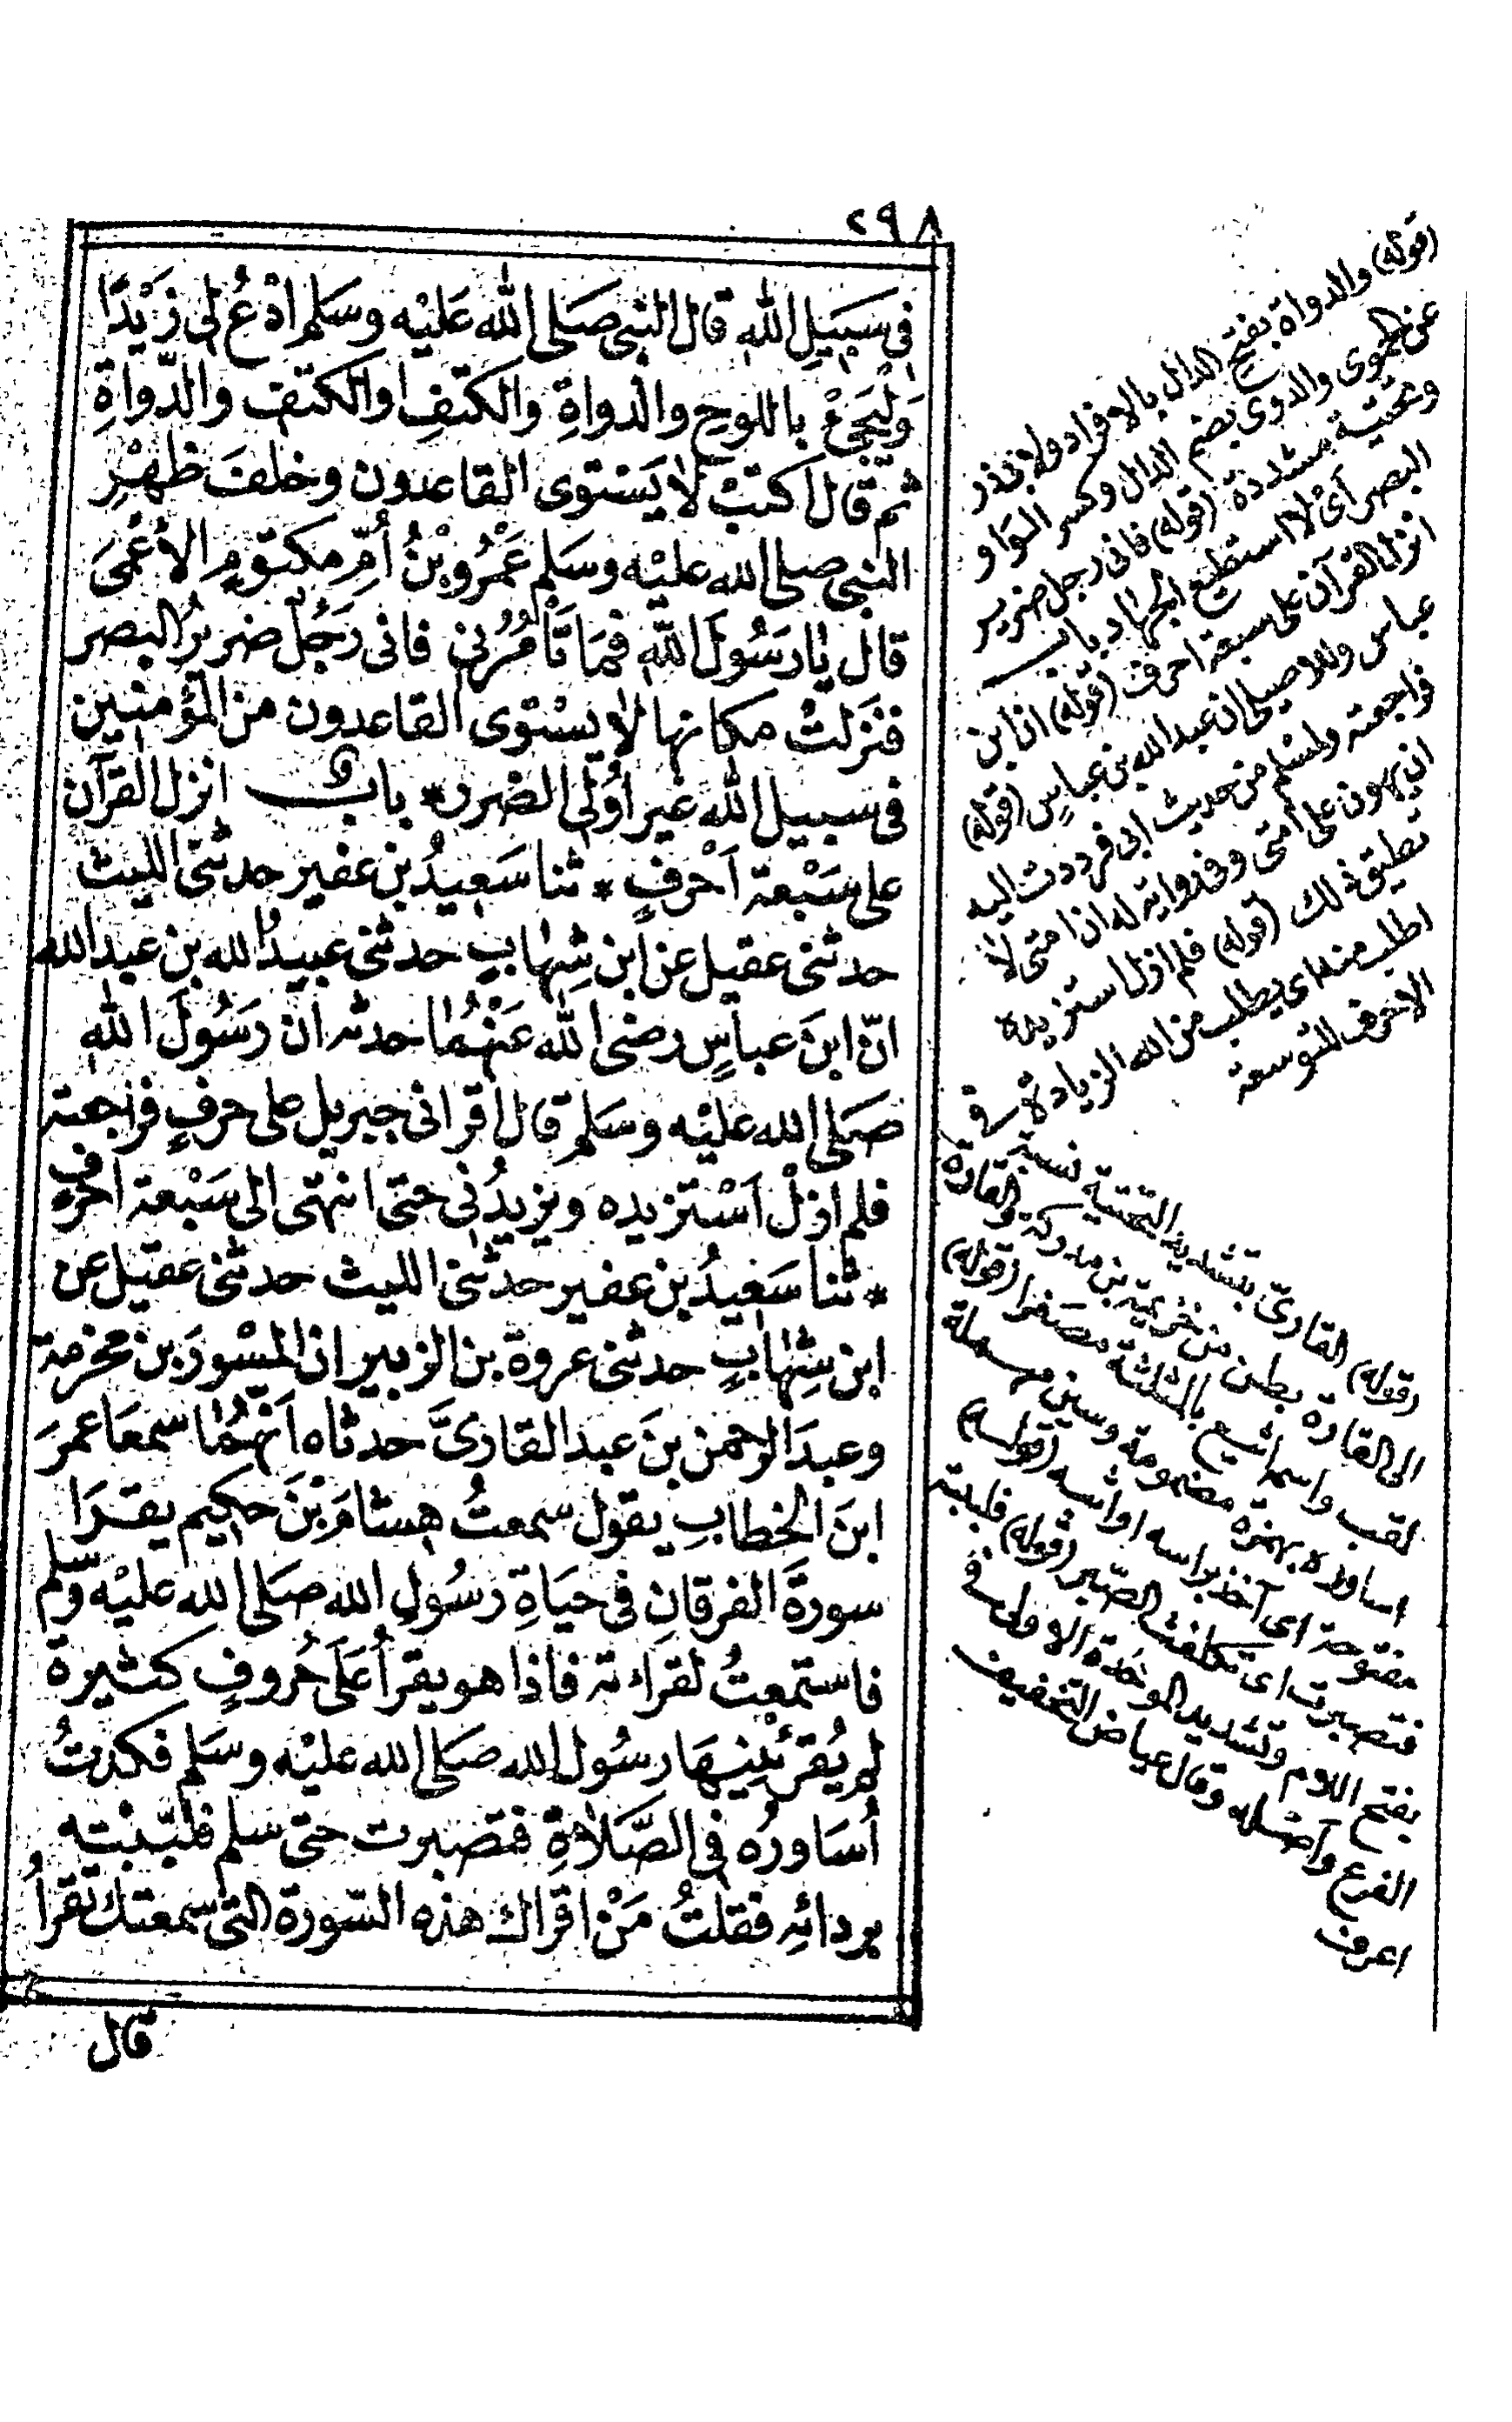 ٢٩٨
فى سَبيلِ اللهِ قال النبى صَلى الله عَليْه وسَلم ادْعُ لى زَيْدًا
وَلْيَجِئْ باللوحِ والدواةِ والكتفِ او الكتف والدّواةِ
ثم قال اكتبْ لا يَسْتوى القاعدون وخلفَ ظهْرِ
النبى صلى الله عليْه وسَلم عَمْرُو بْنُ أُمِّ مكتومٍ الأعْمىَ
قال يٰا رَسُولَ اللهِ فمَا تَأمُرُنِى فانى رَجُلٌ ضريرُ البصر
فنَزلتْ مكانها لا يسْتوى القاعدون من المؤمنين
فى سبيل الله غير أُولى الضرر * باب انزل القرآن
على سَبْعة اَحْرفٍ * ثنا سَعيدُ بن عفير حدثنى الليث
حدثنى عقيل عن ابن شِهٰابٍ حدثنى عبيدُ الله بن عبد الله
انّ ابنَ عباسٍ رضى الله عَنْهُمٰا حدثه ان رَسُولَ اللهِ
صَلى الله عليْه وسَلم قال اقرانى جبريل على حرفٍ فراجعته
فلم ازلْ اَسْتزيده ويزيدُنى حتى انتهى الى سَبْعة احرف
* ثنا سَعيدُ بن عفير حدثنى الليث حدثنى عقيل عن
ابن شِهٰابٍ حدثنى عروة بن الزبير ان المِسْورَ بن مخرمة
وعبدَ الرحمن بنَ عبد القارىَّ حدثاه اَنهُمٰا سمعَا عمرَ
ابنَ الخطابِ يقول سمعتُ هشامَ بْنَ حكيم يقرَا
سورةَ الفرقانِ فى حيَاةِ رَسُولِ الله صَلى الله عليْه وسلم
فاستمعتُ لقراءته فاذا هو يقرأُ عَلَى حُروفٍ كثيرة
لم يُقرئْنِيهَا رسُول الله صَلى الله عليْه وسَلم فكدتُ
أُسَاورُه فى الصَّلاةِ فتصبرت حتى سَلم فلبّبْته
بردائِه فقلتُ مَنْ اقراك هذه السّورة التى سمعتك تقرأُ
قال
(قوله) والدواة بفتح الدال بالافراد ولابى ذر
عن الحموى والدوى بضم الدال وكسر الواو
وتحتية مشددة (قوله) فانى رجل ضرير
البصر اى لا استطيع الجهاد باب
انزل القرآن على سبعة احرف (قوله) ان ابن
عباس وللاصيلى ان عبد الله بن عباس (قوله)
فراجعته ولمسلم من حديث ابى فرددت اليه
ان يهون على امتى وفى رواية له ان امتى لا
تطيق ذلك (قوله) فلم ازل استزيده
اطلب منه اى يطلب من الله الزيادة فى
الاحرف للتوسعة
(قوله) القارىّ بتشديد التحتية نسبة
الى القارة بطن من خزيمة بن مدركة والقارة
لقب واسمه اثيع بالمثلثة مصغرا (قوله)
اساوره بهمزة مضمومة وسين مهملة
مفتوحة اى آخذ براسه او اثبه (قوله)
فتصبرت اى تكلفت الصبر (قوله) فلببته
بفتح اللام وتشديد الموحدة الاولى فى
الفرع واصله وقال عياض التخفيف
اعرف